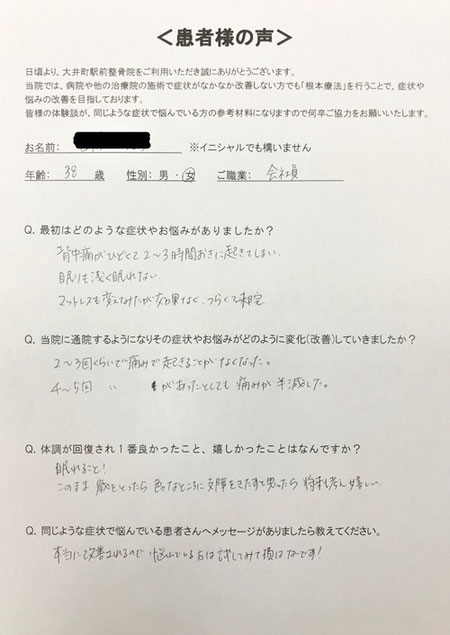 ＜患者様の声＞
日頃より、大井町駅前整骨院をご利用いただき誠にありがとうございます。
当院では、病院や他の治療院の施術で症状がなかなか改善しない方でも「根本療法」を行うことで、症状や
悩みの改善を目指しております。
皆様の体験談が、同じような症状で悩んでいる方の参考材料になりますので何卒ご協力をお願いいたします。
お名前： ※イニシャルでも構いません
年齢： 38 歳 性別：男・女 ご職業： 会社員
Q. 最初はどのような症状やお悩みがありましたか？
背中痛がひどくて2〜3時間おきに起きてしまい、
眠りも浅く眠れない。
マットレスも変えてみたが効果なく、つらくて来院
Q. 当院に通院するようになりその症状やお悩みがどのように変化(改善)していきましたか？
2〜3回くらいで痛みで起きることがなくなった。
4〜5回 〃 があったとしても痛みが半減した。
Q. 体調が回復され1番良かったこと、嬉しかったことはなんですか？
眠れること！
このまま歳をとったら色々なところに支障をきたすと思ったら将来も考え嬉しい。
Q. 同じような症状で悩んでいる患者さんへメッセージがありましたら教えてください。
本当に改善されるので悩んでいる方は試してみて損はないです！